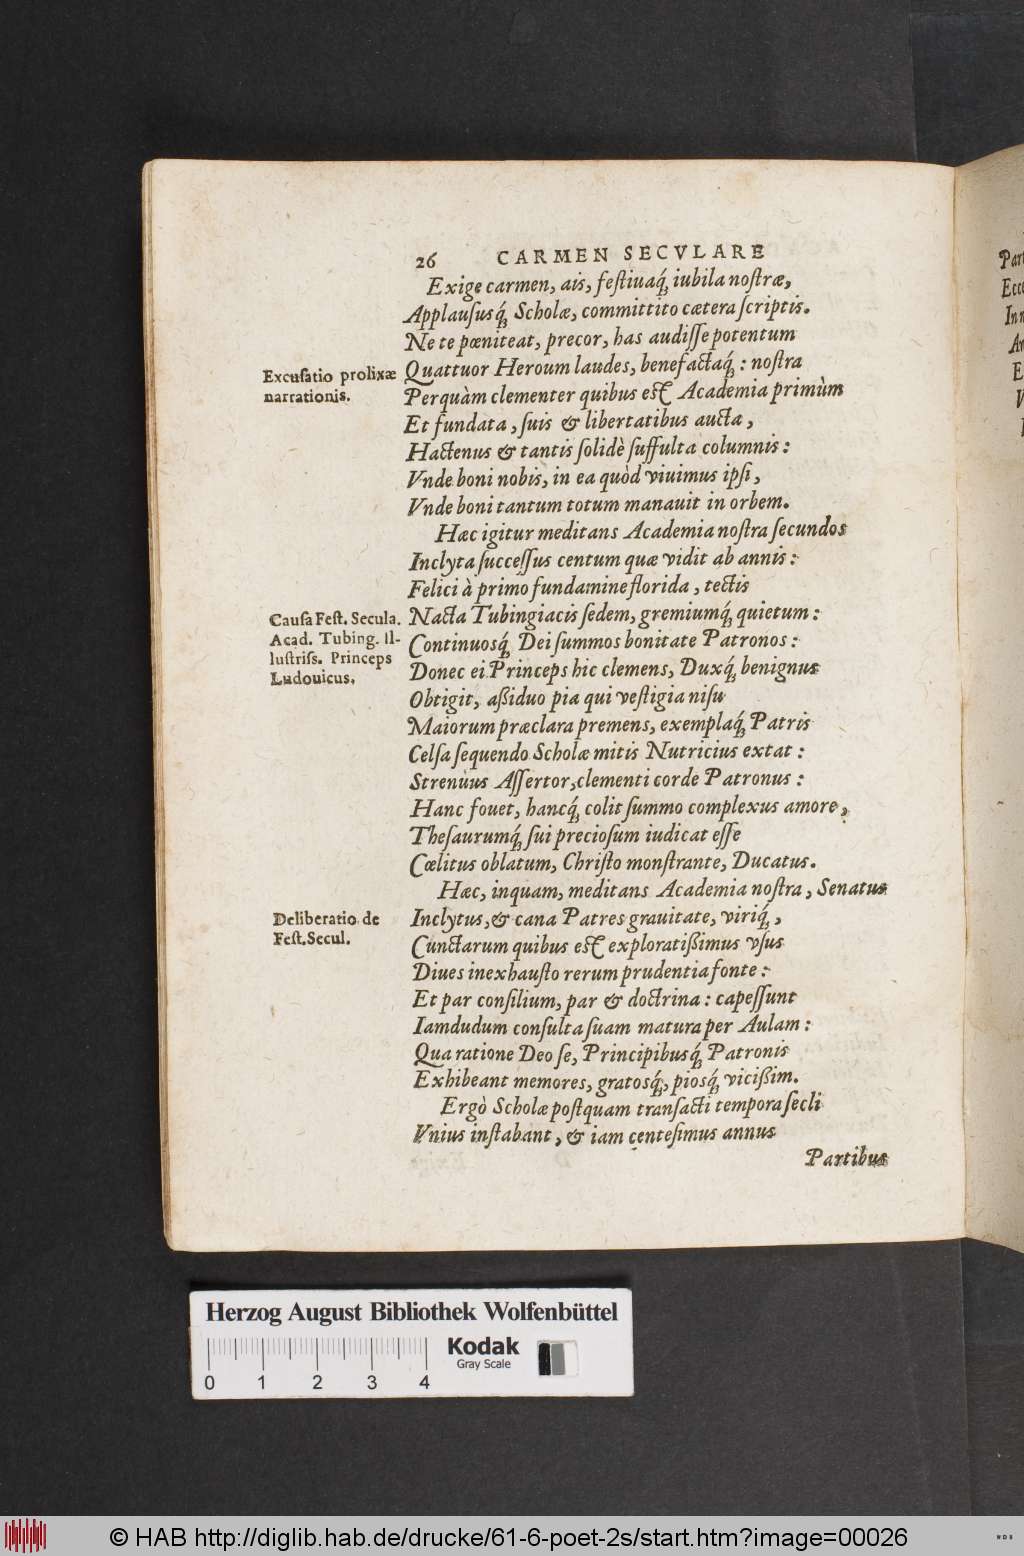 26 CARMEN SECVLARE
Exige carmen, ais, feſtiuaq́; iubila noſtræ,
Applauſusq́; Scholæ, committito cætera ſcriptis.
Ne te pœniteat, precor, has audiſſe potentum
Quattuor Heroum laudes, benefactaq́;: noſtra
Excuſatio prolixæ
narrationis.
Perquàm clementer quibus eſt Academia primùm
Et fundata, ſuis & libertatibus aucta,
Hactenus & tantis ſolidè ſuffulta columnis:
Vnde boni nobis, in ea quòd viuimus ipſi,
Vnde boni tantum totum manauit in orbem.
Hæc igitur meditans Academia noſtra ſecundos
Inclyta ſucceſſus centum quæ vidit ab annis:
Felici à primo fundamine florida, tectis
Cauſa Feſt. Secula.
Acad. Tubing. Il-
luſtriſs. Princeps
Ludouicus.
Nacta Tubingiacis ſedem, gremiumq́; quietum:
Continuosq́; Dei ſummos bonitate Patronos:
Donec ei Princeps hic clemens, Duxq́; benignus
Obtigit, aßiduo pia qui veſtigia niſu
Maiorum præclara premens, exemplaq́; Patris
Celſa ſequendo Scholæ mitis Nutricius extat:
Strenuus Aſſertor, clementi corde Patronus:
Hanc fouet, hancq́; colit ſummo complexus amore,
Theſaurumq́; ſui precioſum iudicat eſſe
Cœlitus oblatum, Chriſto monſtrante, Ducatus.
Hæc, inquam, meditans Academia noſtra, Senatus
Deliberatio de
Feſt. Secul.
Inclytus, & cana Patres grauitate, viriq́;,
Cunctarum quibus eſt exploratißimus vſus
Diues inexhauſto rerum prudentia fonte:
Et par conſilium, par & doctrina: capeſſunt
Iamdudum conſulta ſuam matura per Aulam:
Qua ratione Deo ſe, Principibusq́; Patronis
Exhibeant memores, gratosq́;, piosq́; vicißim.
Ergò Scholæ poſtquam tranſacti tempora ſecli
Vnius inſtabant, & iam centeſimus annus
Partibus
Herzog August Bibliothek Wolfenbüttel
Kodak
Gray Scale
0 1 2 3 4
© HAB http://diglib.hab.de/drucke/61-6-poet-2s/start.htm?image=00026